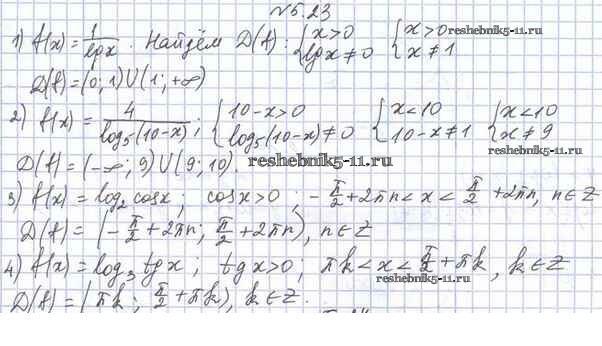 №5.23
1) f(x) = 1/lg x. Найдём D(f): { x>0 lg x ≠ 0 { x>0 x≠1 reshebnik5-11.ru
D(f) = (0; 1) ∪ (1; +∞)
2) f(x) = 4/log₅(10-x); { 10-x>0 log₅(10-x)≠0 { x<10 10-x≠1 { x<10 x≠9
D(f) = (-∞; 9) ∪ (9; 10). reshebnik5-11.ru
3) f(x) = log₂ cos x; cos x>0; -π/2+2πn<x<π/2+2πn, n∈Z
D(f) = (-π/2+2πn; π/2+2πn), n∈Z
4) f(x) = log₃ tg x; tg x>0; πk<x<π/2+πk, k∈Z
reshebnik5-11.ru
D(f) = (πk; π/2+πk), k∈Z.